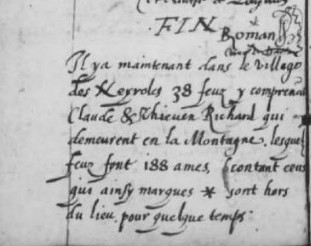 FIN
Roman
Il y a maintenant dans le village
des Neyroles 38 feuz y comprenant
Claude & Thieven Richard qui
demeurent en la Montagne, lesquelz
feuz font 188 ames, contant ceux
qui ainsy marques * sont hors
du lieu pour quelque temps